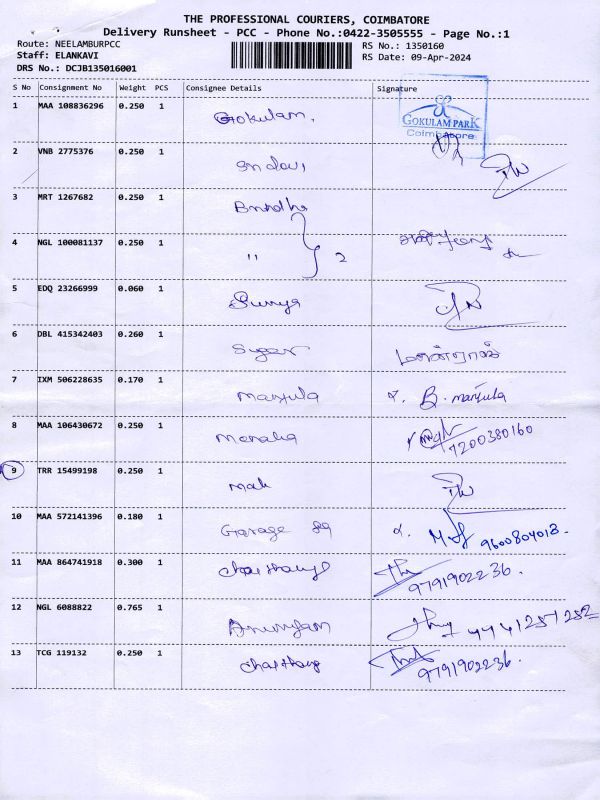 THE PROFESSIONAL COURIERS, COIMBATORE
Delivery Runsheet - PCC - Phone No.:0422-3505555 - Page No.:1
Route: NEELAMBURPCC RS No.: 1350160
Staff: ELANKAVI RS Date: 09-Apr-2024
DRS No.: DCJB135016001
S No Consignment No Weight PCS Consignee Details Signature
1 MAA 108836296 0.250 1 Gokulam. GOKULAM PARK
Coimbatore
2 VNB 2775376 0.250 1
3 MRT 1267682 0.250 1
4 NGL 100081137 0.250 1 " 2
5 EDQ 23266999 0.060 1 Surya
6 DBL 415342403 0.260 1 Suger
7 IXM 506228635 0.170 1 Manjula B. manjula
8 MAA 106430672 0.250 1 7200380160
9 TRR 15499198 0.250 1
10 MAA 572141396 0.180 1 Garage 9600804013.
11 MAA 864741918 0.300 1 9791902236.
12 NGL 6088822 0.765 1
13 TCG 119132 0.250 1 9791902236.